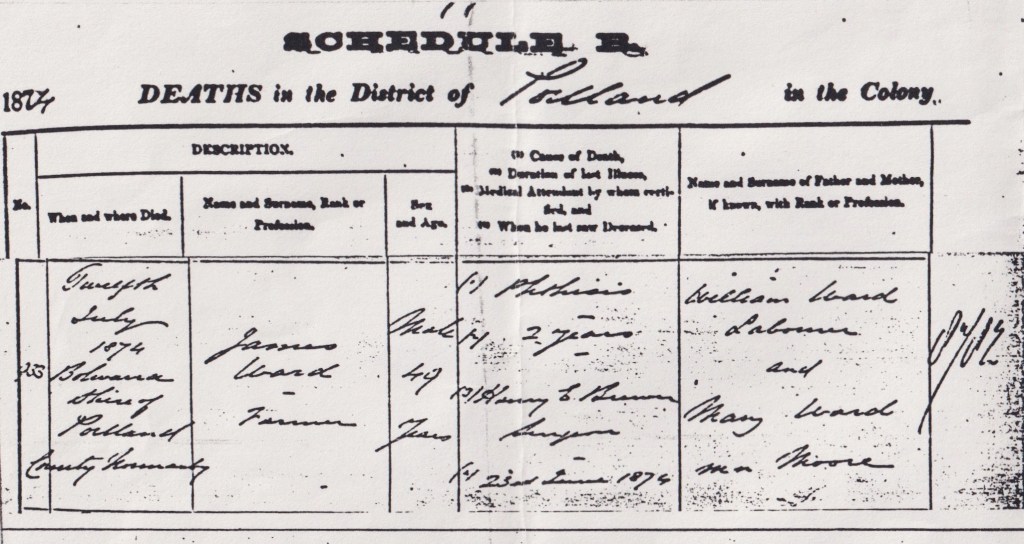 SCHEDULE B.
1874 DEATHS in the District of Portland in the Colony
DESCRIPTION.
No.
When and where Died.
Name and Surname, Rank or
Profession.
Sex
and Age.
(1) Cause of Death,
(2) Duration of last Illness,
(3) Medical Attendant by whom certi-
fied, and
(4) When he last saw Deceased.
Name and Surname of Father and Mother,
if known, with Rank or Profession.
Twelfth
July
1874
Bolwarra
Shire of
Portland
County Normanby
James
Ward
Farmer
Male
49
Years
(1) Phthisis
2 years
(3) Henry E Brewer
Surgeon
(4) 23rd June 1874
William Ward
Labourer
and
Mary Ward
mn Moore